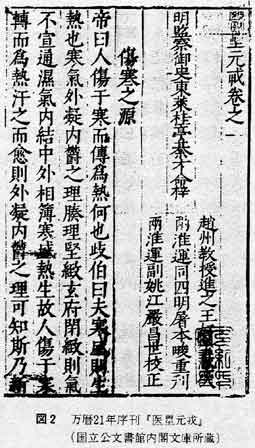 元戎卷之一
趙州教授進之王
明監察御史東萊桂亭綦 命梓
兩淮運同四明屠本畯重刊
兩淮運副姚江嚴昌世校正
傷寒之源
帝曰人傷于寒而傳為熱何也歧伯曰夫寒盛則生
熱也寒氣外凝內鬱之理腠理堅緻玄府閉緻則氣
不宣通濕氣內結中外相薄寒盛熱生故人傷于寒
轉而為熱汗之而愈則外凝內鬱之理可知斯乃新
図2 万暦21年序刊『医塁元戎』
(国立公文書館内閣文庫所蔵)